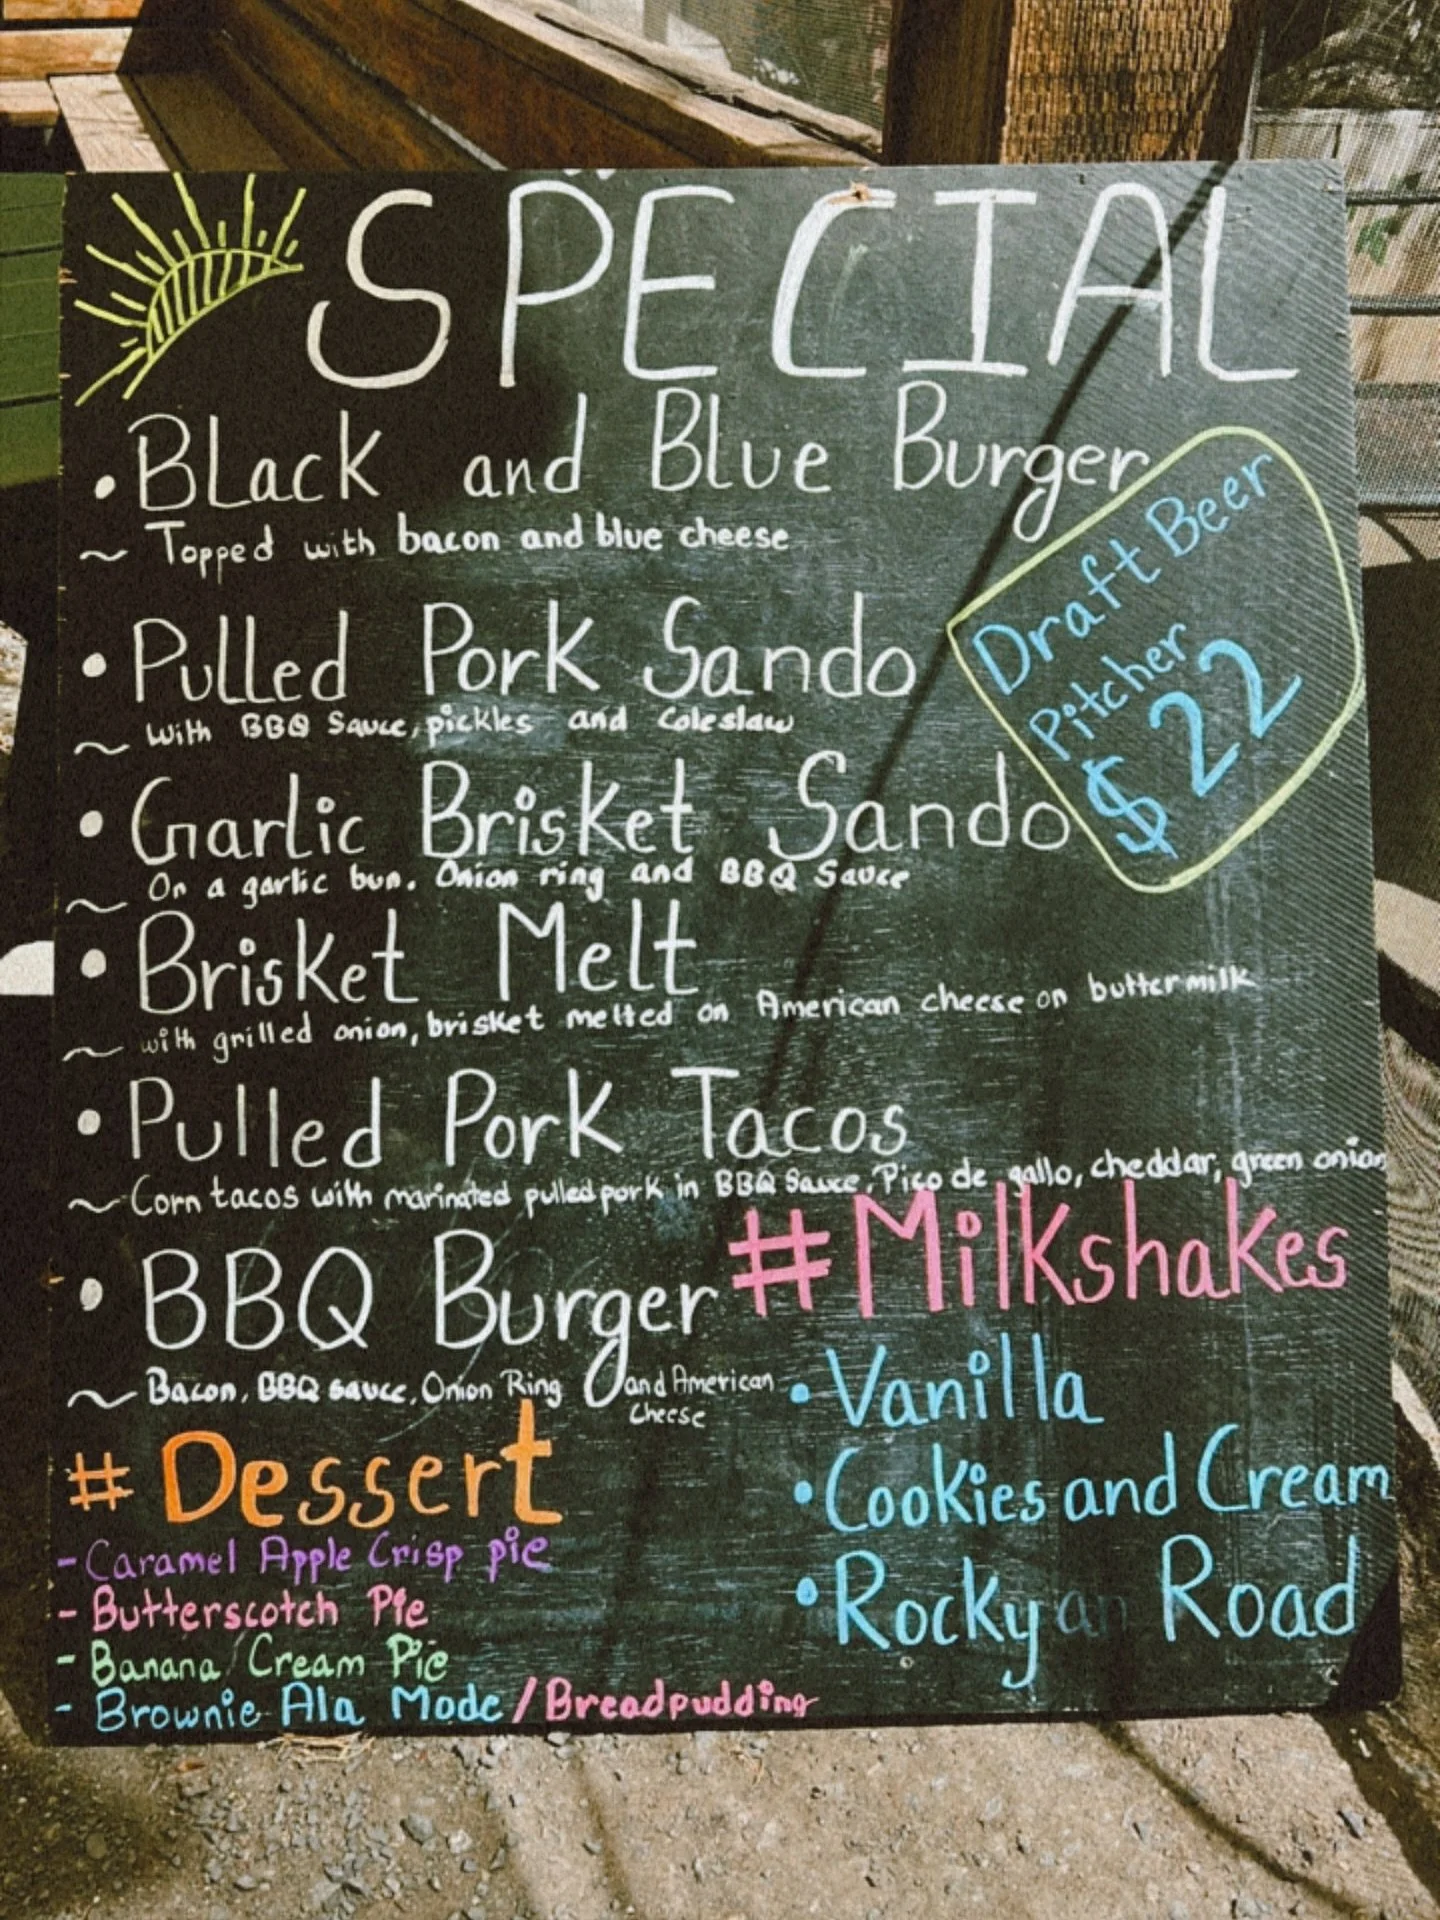 SPECIAL
• Black and Blue Burger
~ Topped with bacon and blue cheese
Draft Beer
Pitcher
$22
• Pulled Pork Sando
~ with BBQ Sauce, pickles and Coleslaw
• Garlic Brisket Sando
~ On a garlic bun. Onion ring and BBQ Sauce
• Brisket Melt
~ with grilled onion, brisket melted on American cheese on buttermilk
• Pulled Pork Tacos
~ Corn tacos with marinated pulled pork in BBQ Sauce, Pico de gallo, cheddar, green onion
• BBQ Burger
~ Bacon, BBQ sauce, Onion Ring and American
Cheese
# Dessert
- Caramel Apple Crisp pie
- Butterscotch Pie
- Banana Cream Pie
- Brownie Ala Mode / Breadpudding
#Milkshakes
• Vanilla
• Cookies and Cream
• Rocky Road